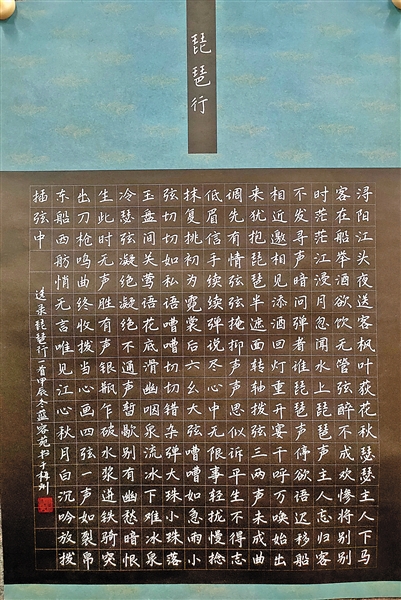 琵琶行
浔阳江头夜送客枫叶荻花秋瑟瑟主人下马
客在船举酒欲饮无管弦醉不成欢惨将别别
时茫茫江浸月忽闻水上琵琶声主人忘归客
不发寻声暗问弹者谁琵琶声停欲语迟移船
相近邀相见添酒回灯重开宴千呼万唤始出
来犹抱琵琶半遮面转轴拨弦三两声未成曲
调先有情弦弦掩抑声声思似诉平生不得志
低眉信手续续弹说尽心中无限事轻拢慢捻
抹复挑初为霓裳后六幺大弦嘈嘈如急雨小
弦切切如私语嘈嘈切切错杂弹大珠小珠落
玉盘间关莺语花底滑幽咽泉流冰下难冰泉
冷瑟弦凝绝凝绝不通声暂歇别有幽愁暗恨
生此时无声胜有声银瓶乍破水浆迸铁骑突
出刀枪鸣曲终收拨当心画四弦一声如裂帛
东船西舫悄无言唯见江心秋月白沉吟放拨
插弦中
选录琵琶行一首甲辰冬蓝容苑书于